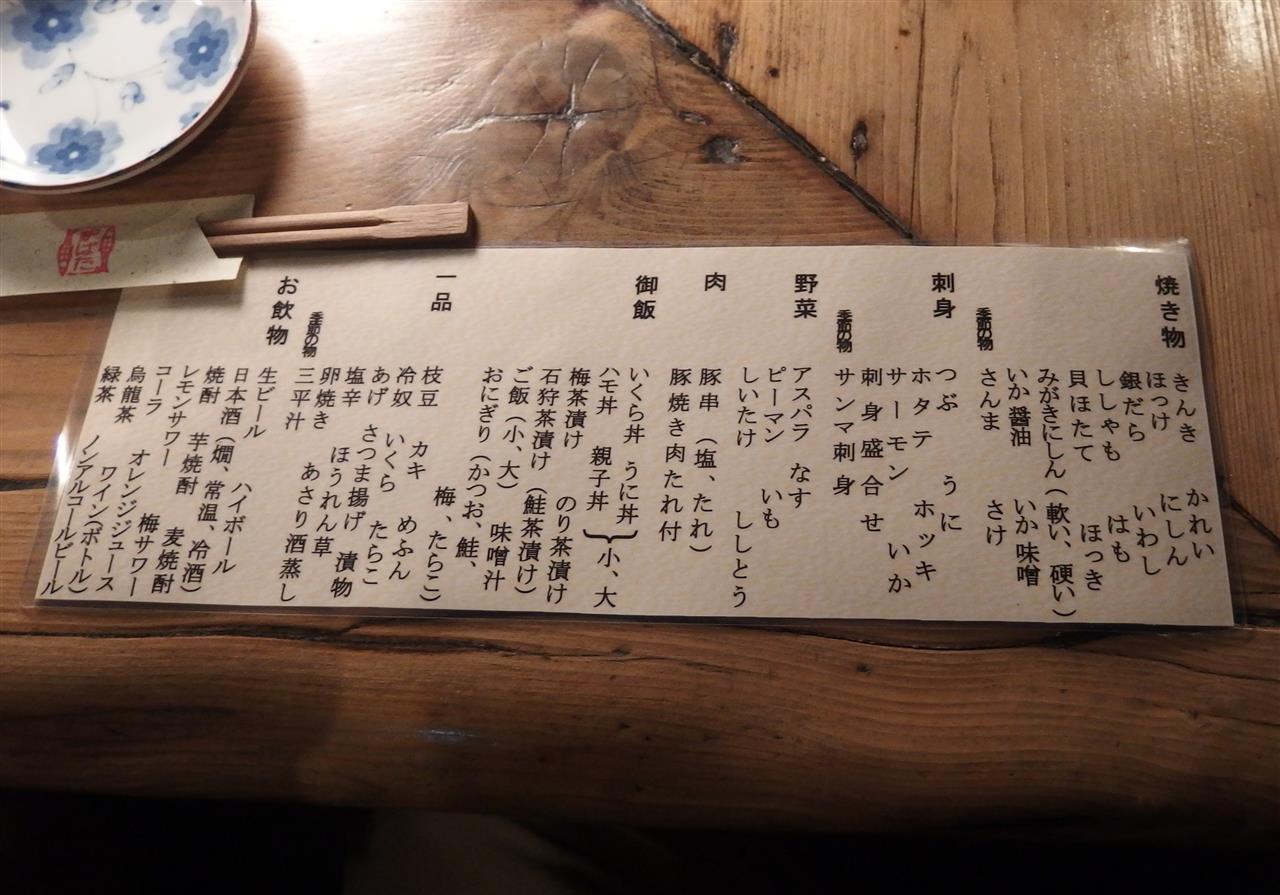 焼き物
きんき　かれい
ほっけ　にしん
銀だら　いわし
ししゃも　はも
貝ほたて　ほっき
みがきにしん（軟い、硬い）
いか醤油　いか味噌
季節の物
さんま　さけ
刺身
つぶ　うに
ホタテ　ホッキ
サーモン　いか
刺身盛合せ
季節の物
サンマ刺身
野菜
アスパラ　なす
ピーマン　いも
しいたけ　ししとう
肉
豚串（塩、たれ）
豚焼き肉たれ付
御飯
いくら丼　うに丼
ハモ丼　親子丼　｝小、大
梅茶漬け　のり茶漬け
石狩茶漬け（鮭茶漬け）
ご飯（小、大）　味噌汁
おにぎり（かつお、鮭、
梅、たらこ）
一品
枝豆　カキ　めふん
冷奴　いくら　たらこ
あげ　さつま揚げ　漬物
塩辛　ほうれん草
卵焼き　あさり酒蒸し
季節の物
三平汁
お飲物
生ビール　ハイボール
日本酒（燗、常温、冷酒）
焼酎　芋焼酎　麦焼酎
レモンサワー　梅サワー
コーラ　オレンジジュース
烏龍茶　ワイン（ボトル）
緑茶　ノンアルコールビール